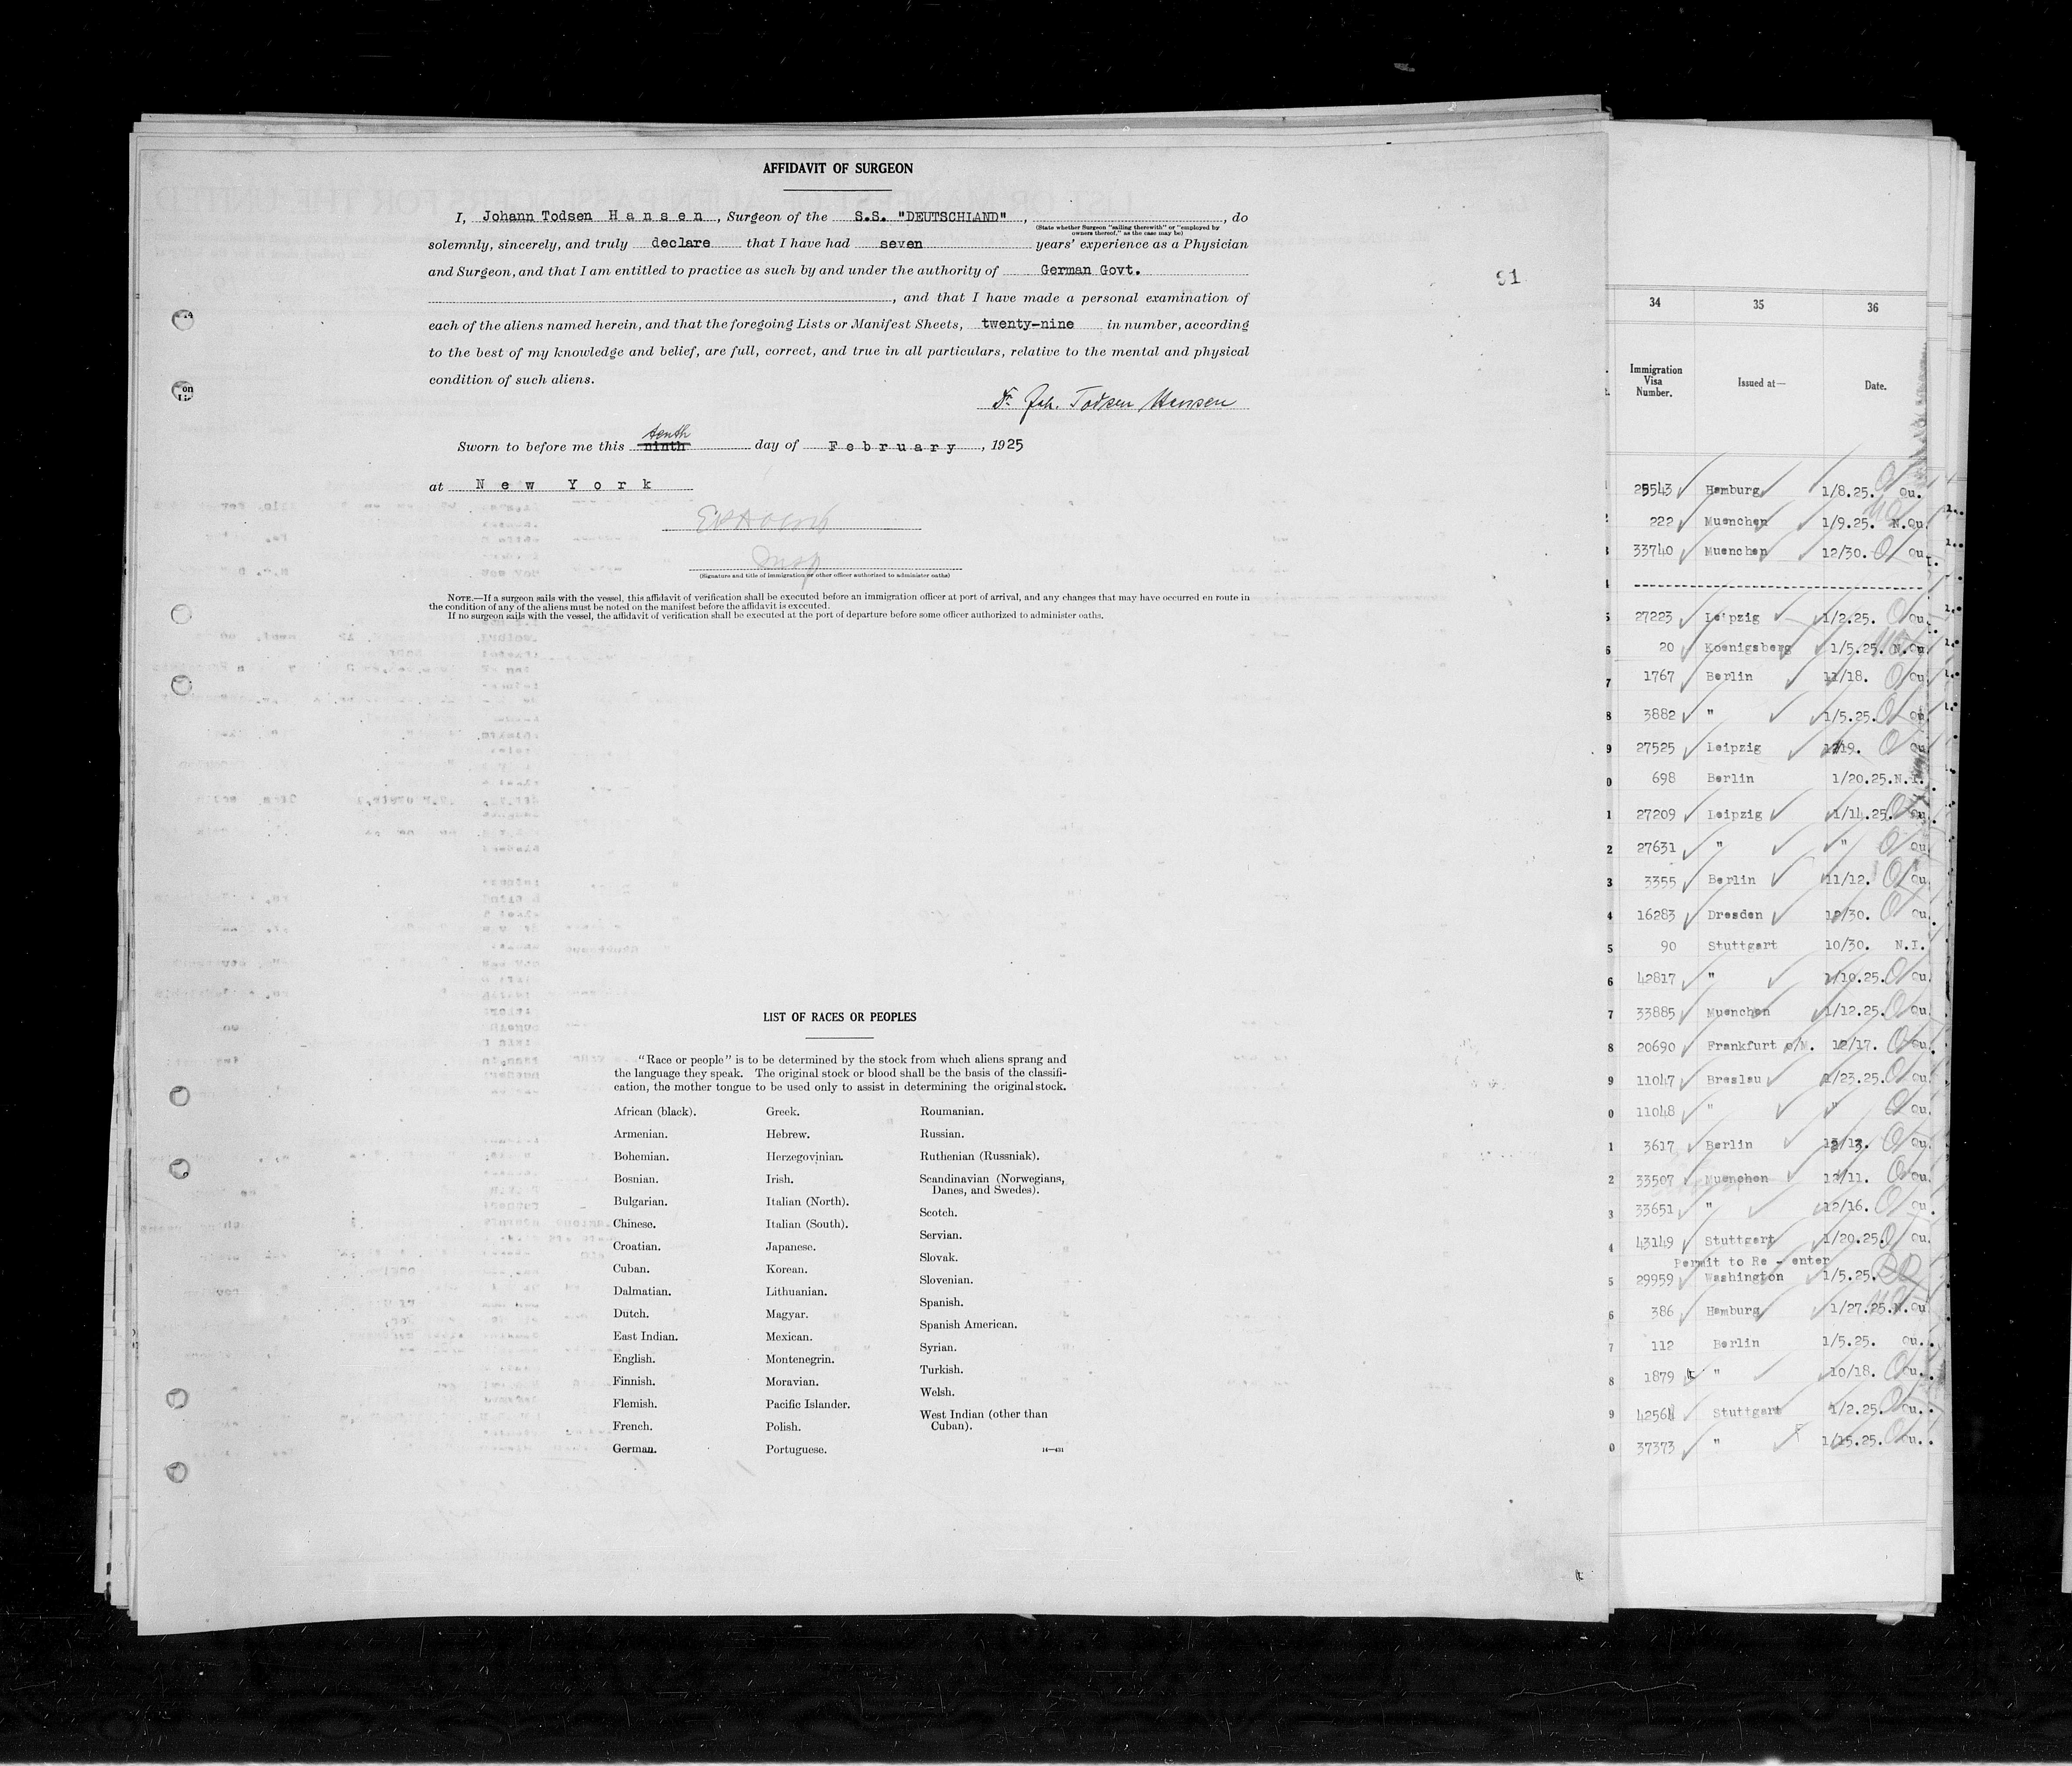 AFFIDAVIT OF SURGEON
I, Johann Todsen Hansen, Surgeon of the S.S. "DEUTSCHLAND", , do
(State whether Surgeon "sailing therewith" or "employed by
owners thereof," as the case may be)
solemnly, sincerely, and truly declare that I have had seven years' experience as a Physician
and Surgeon, and that I am entitled to practice as such by and under the authority of German Govt.
, and that I have made a personal examination of
91
each of the aliens named herein, and that the foregoing Lists or Manifest Sheets, twenty-nine in number, according
to the best of my knowledge and belief, are full, correct, and true in all particulars, relative to the mental and physical
condition of such aliens.
Dr. Joh. Todsen Hansen
tenth
Sworn to before me this ninth day of February, 1925
at New York
Insp
(Signature and title of immigration or other officer authorized to administer oaths)
NOTE.—If a surgeon sails with the vessel, this affidavit of verification shall be executed before an immigration officer at port of arrival, and any changes that may have occurred en route in
the condition of any of the aliens must be noted on the manifest before the affidavit is executed.
If no surgeon sails with the vessel, the affidavit of verification shall be executed at the port of departure before some officer authorized to administer oaths.
LIST OF RACES OR PEOPLES
"Race or people" is to be determined by the stock from which aliens sprang and
the language they speak. The original stock or blood shall be the basis of the classifi-
cation, the mother tongue to be used only to assist in determining the original stock.
African (black).
Armenian.
Bohemian.
Bosnian.
Bulgarian.
Chinese.
Croatian.
Cuban.
Dalmatian.
Dutch.
East Indian.
English.
Finnish.
Flemish.
French.
German.
Greek.
Hebrew.
Herzegovinian.
Irish.
Italian (North).
Italian (South).
Japanese.
Korean.
Lithuanian.
Magyar.
Mexican.
Montenegrin.
Moravian.
Pacific Islander.
Polish.
Portuguese.
Roumanian.
Russian.
Ruthenian (Russniak).
Scandinavian (Norwegians,
Danes, and Swedes).
Scotch.
Servian.
Slovak.
Slovenian.
Spanish.
Spanish American.
Syrian.
Turkish.
Welsh.
West Indian (other than
Cuban).
14—431
34 35 36
Immigration
Visa
Number.
Issued at—
Date.
25543 Hamburg 1/8.25. Qu.
222 Muenchen 1/9.25. N.Qu.
33740 Muenchen 12/30. Qu.
27223 Leipzig 1/2.25. Qu.
6 20 Koenigsberg 1/5.25. N.Qu.
7 1767 Berlin 11/18. Qu.
8 3882 " 1/5.25. Qu.
9 27525 Leipzig 19. Qu.
0 698 Berlin 1/20.25. N.I.
1 27209 Leipzig 1/14.25. Qu.
2 27631 " " Qu.
3 3355 Berlin 11/12. Qu.
4 16283 Dresden 12/30. Qu.
5 90 Stuttgart 10/30. N.I.
6 42817 " 1/10.25. Qu.
7 33885 Muenchen 1/12.25. Qu.
8 20690 Frankfurt a/M. 12/17. Qu.
9 11047 Breslau 1/23.25. Qu.
0 11048 " " Qu.
1 3617 Berlin Qu.
2 33507 Muenchen 12/11. Qu.
3 33651 " 12/16. Qu.
4 43149 Stuttgart 1/20.25. Qu.
Permit to Re - enter
5 29959 Washington 1/5.25.
6 386 Hamburg 1/27.25. N.Qu.
7 112 Berlin 1/5.25. Qu.
8 1879 " 10/18. Qu.
9 42564 Stuttgart 1/2.25. Qu.
0 37373 " 1/15.25. Qu.